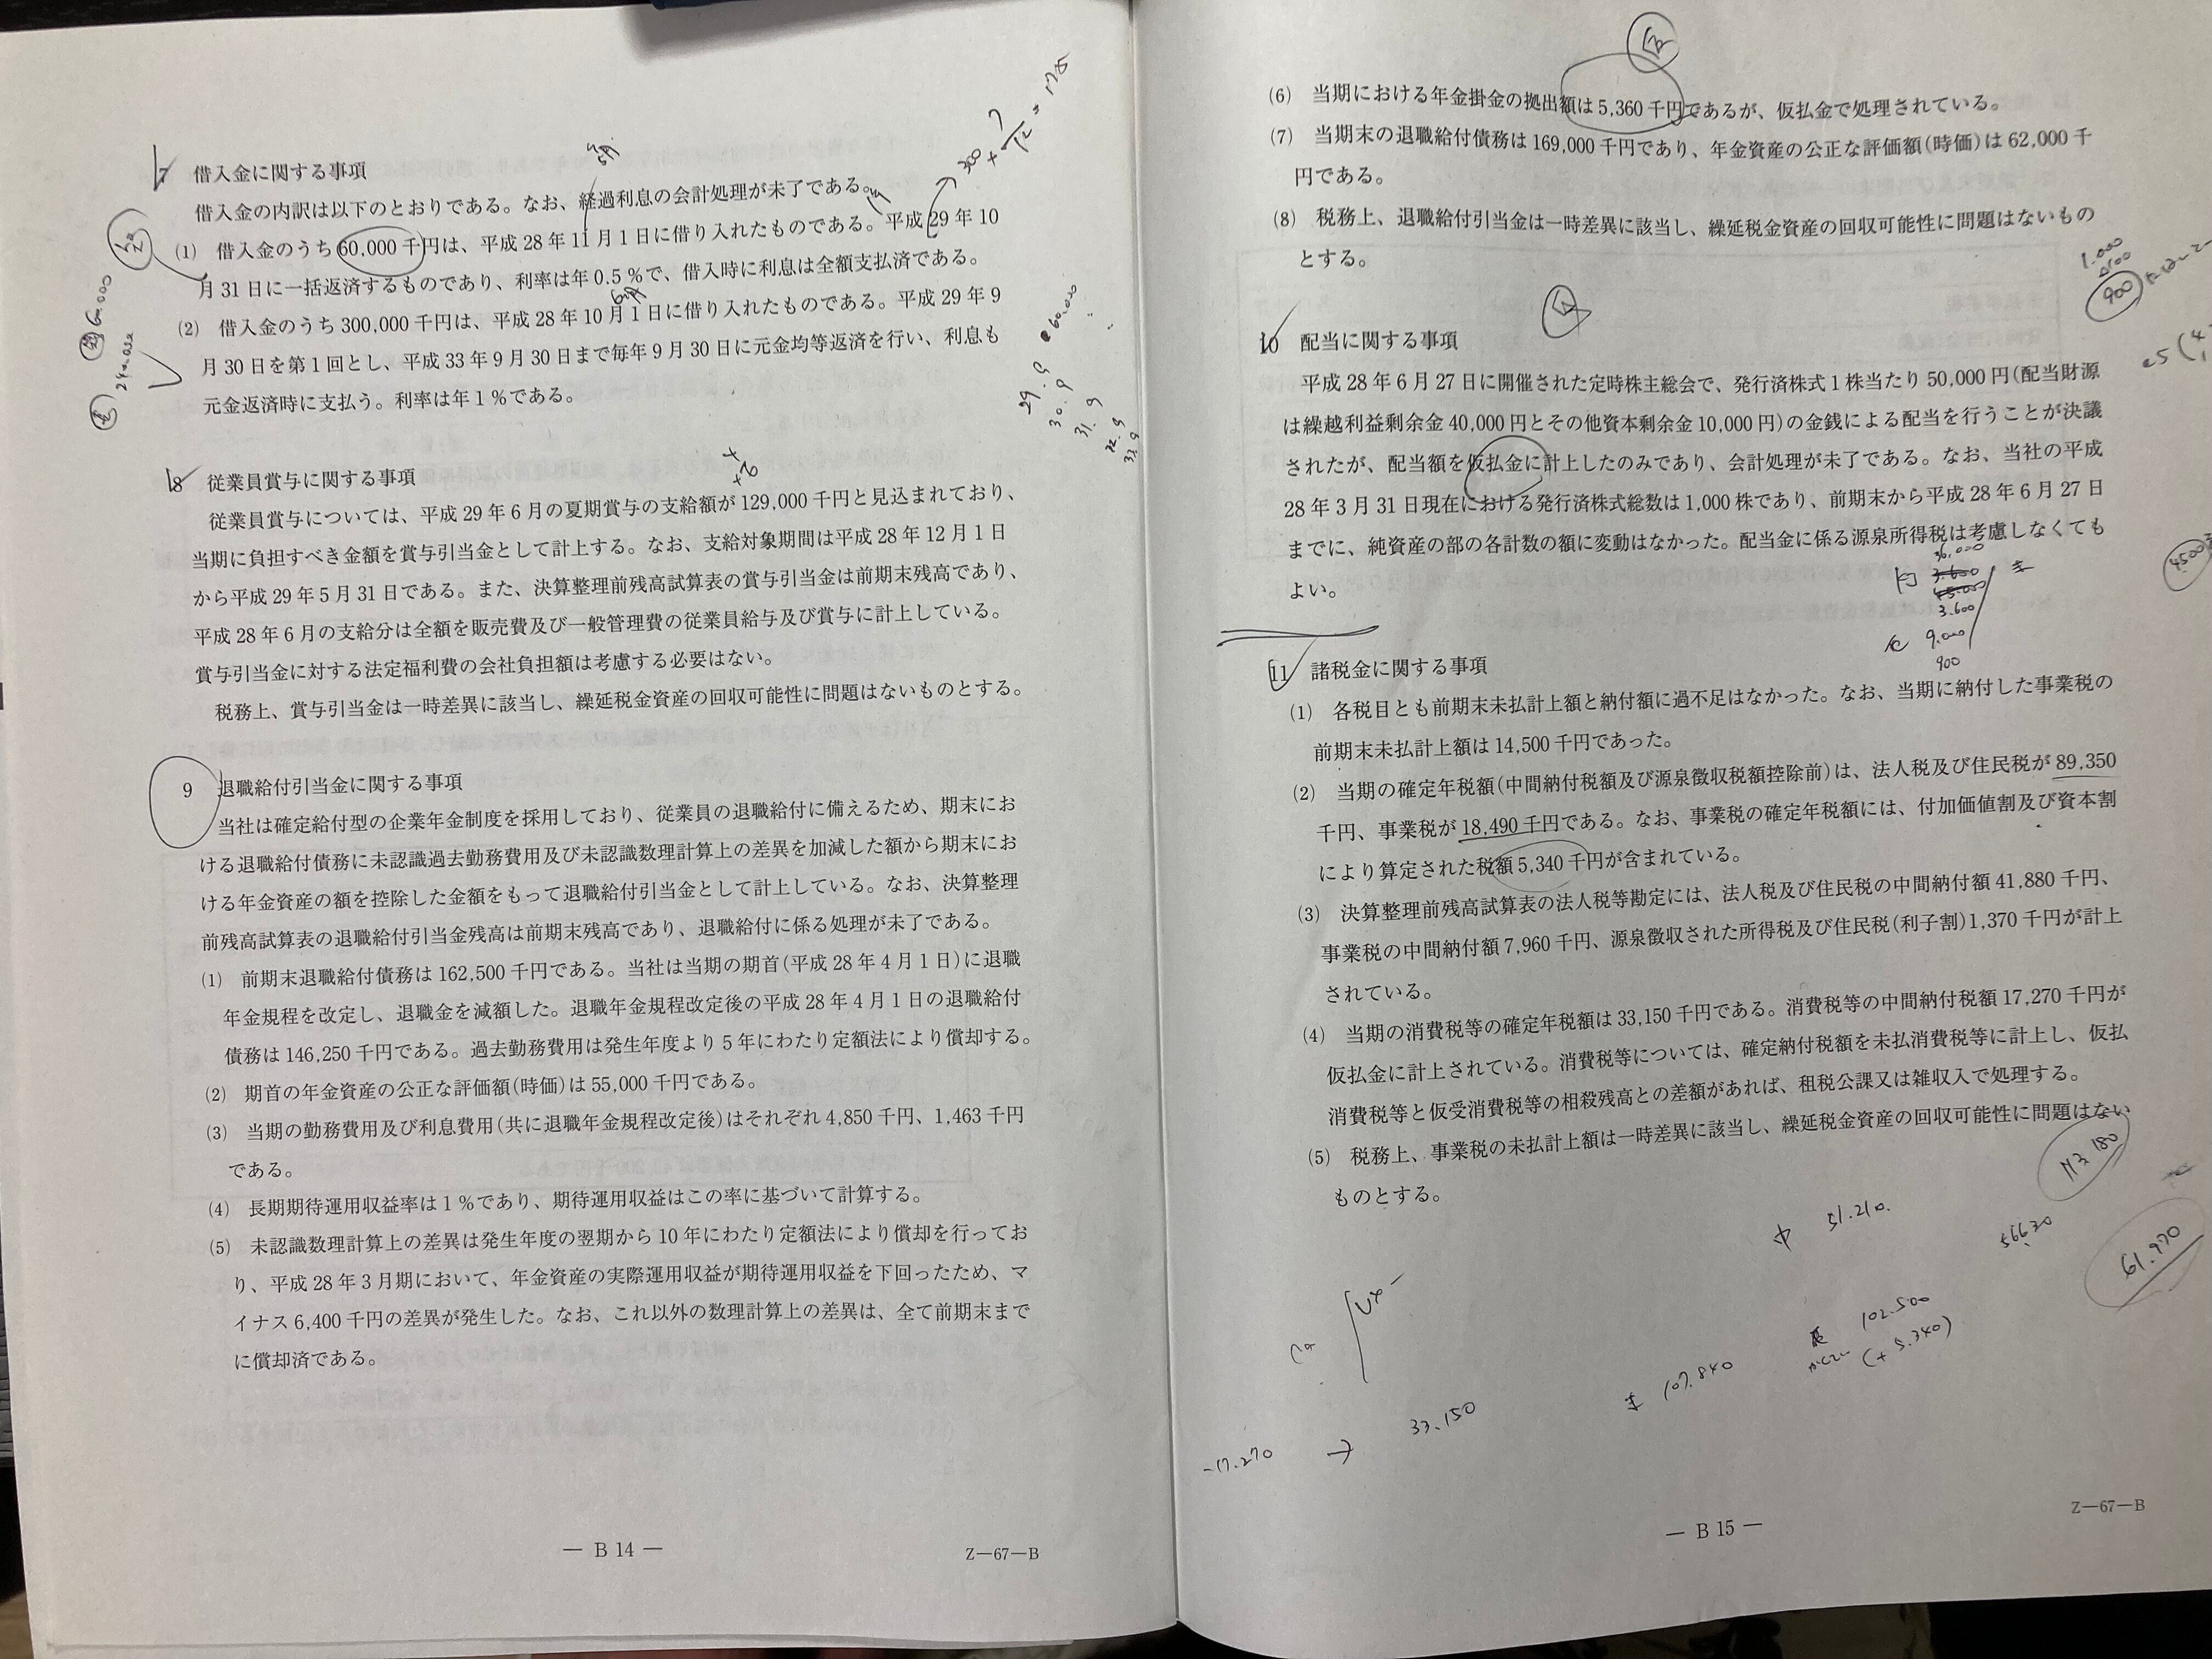 7 借入金に関する事項
借入金の内訳は以下のとおりである。なお、経過利息の会計処理が未了である。
⑴ 借入金のうち 60,000 千円は、平成 28 年 11 月 1 日に借り入れたものである。平成 29 年 10
月 31 日に一括返済するものであり、利率は年 0.5 %で、借入時に利息は全額支払済である。
⑵ 借入金のうち 300,000 千円は、平成 28 年 10 月 1 日に借り入れたものである。平成 29 年 9
月 30 日を第 1 回とし、平成 33 年 9 月 30 日まで毎年 9 月 30 日に元金均等返済を行い、利息も
元金返済時に支払う。利率は年 1 %である。
60,000
240,000
29.9 60,000
30.9
31.9
32.9
33.9
8 従業員賞与に関する事項
従業員賞与については、平成 29 年 6 月の夏期賞与の支給額が 129,000 千円と見込まれており、
当期に負担すべき金額を賞与引当金として計上する。なお、支給対象期間は平成 28 年 12 月 1 日
から平成 29 年 5 月 31 日である。また、決算整理前残高試算表の賞与引当金は前期末残高であり、
平成 28 年 6 月の支給分は全額を販売費及び一般管理費の従業員給与及び賞与に計上している。
賞与引当金に対する法定福利費の会社負担額は考慮する必要はない。
税務上、賞与引当金は一時差異に該当し、繰延税金資産の回収可能性に問題はないものとする。
9 退職給付引当金に関する事項
当社は確定給付型の企業年金制度を採用しており、従業員の退職給付に備えるため、期末にお
ける退職給付債務に未認識過去勤務費用及び未認識数理計算上の差異を加減した額から期末にお
ける年金資産の額を控除した金額をもって退職給付引当金として計上している。なお、決算整理
前残高試算表の退職給付引当金残高は前期末残高であり、退職給付に係る処理が未了である。
⑴ 前期末退職給付債務は 162,500 千円である。当社は当期の期首(平成 28 年 4 月 1 日)に退職
年金規程を改定し、退職金を減額した。退職年金規程改定後の平成 28 年 4 月 1 日の退職給付
債務は 146,250 千円である。過去勤務費用は発生年度より 5 年にわたり定額法により償却する。
⑵ 期首の年金資産の公正な評価額(時価)は 55,000 千円である。
⑶ 当期の勤務費用及び利息費用(共に退職年金規程改定後)はそれぞれ 4,850 千円、1,463 千円
である。
⑷ 長期期待運用収益率は 1 %であり、期待運用収益はこの率に基づいて計算する。
⑸ 未認識数理計算上の差異は発生年度の翌期から 10 年にわたり定額法により償却を行ってお
り、平成 28 年 3 月期において、年金資産の実際運用収益が期待運用収益を下回ったため、マ
イナス 6,400 千円の差異が発生した。なお、これ以外の数理計算上の差異は、全て前期末まで
に償却済である。
— B 14 —
Z—67—B
⑹ 当期における年金掛金の拠出額は 5,360 千円であるが、仮払金で処理されている。
⑺ 当期末の退職給付債務は 169,000 千円であり、年金資産の公正な評価額(時価)は 62,000 千
円である。
⑻ 税務上、退職給付引当金は一時差異に該当し、繰延税金資産の回収可能性に問題はないもの
とする。
1,000
900
10 配当に関する事項
平成 28 年 6 月 27 日に開催された定時株主総会で、発行済株式 1 株当たり 50,000 円(配当財源
は繰越利益剰余金 40,000 円とその他資本剰余金 10,000 円)の金銭による配当を行うことが決議
されたが、配当額を仮払金に計上したのみであり、会計処理が未了である。なお、当社の平成
28 年 3 月 31 日現在における発行済株式総数は 1,000 株であり、前期末から平成 28 年 6 月 27 日
までに、純資産の部の各計数の額に変動はなかった。配当金に係る源泉所得税は考慮しなくても
よい。
36,000
3,600
3,600
9,000
900
11 諸税金に関する事項
⑴ 各税目とも前期末未払計上額と納付額に過不足はなかった。なお、当期に納付した事業税の
前期末未払計上額は 14,500 千円であった。
⑵ 当期の確定年税額(中間納付税額及び源泉徴収税額控除前)は、法人税及び住民税が 89,350
千円、事業税が 18,490 千円である。なお、事業税の確定年税額には、付加価値割及び資本割
により算定された税額 5,340 千円が含まれている。
⑶ 決算整理前残高試算表の法人税等勘定には、法人税及び住民税の中間納付額 41,880 千円、
事業税の中間納付額 7,960 千円、源泉徴収された所得税及び住民税(利子割)1,370 千円が計上
されている。
⑷ 当期の消費税等の確定年税額は 33,150 千円である。消費税等の中間納付税額 17,270 千円が
仮払金に計上されている。消費税等については、確定納付税額を未払消費税等に計上し、仮払
消費税等と仮受消費税等の相殺残高との差額があれば、租税公課又は雑収入で処理する。
⑸ 税務上、事業税の未払計上額は一時差異に該当し、繰延税金資産の回収可能性に問題はない
ものとする。
中 51,210.
56630
61,970
102,500
(+5,340)
107,840
33,150
-17,270 →
— B 15 —
Z—67—B